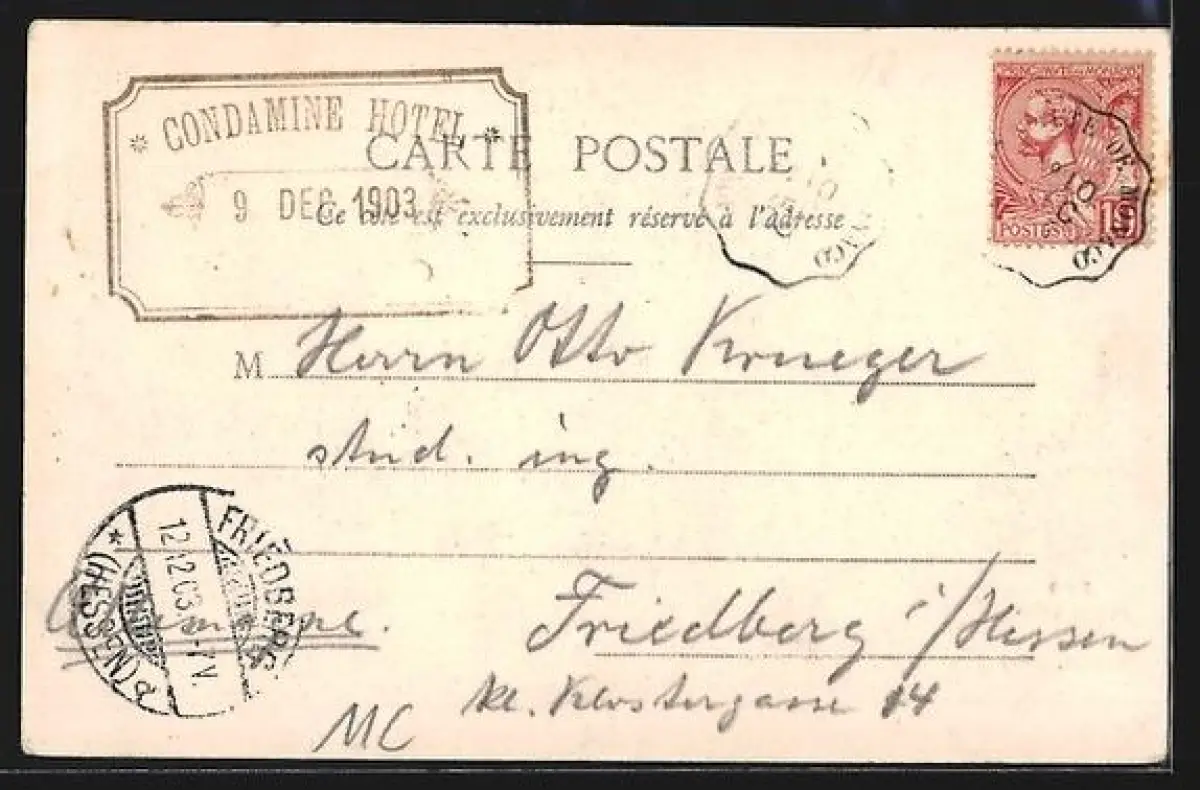 CONDAMINE HOTEL
9 DEC 1903
CARTE POSTALE
Ce côté est exclusivement réservé à l'adresse
POSTES
15
M Herrn Otto Krueger
stud. ing.
FRIEDBERG
(HESSEN)
12.12.03.
Allemagne.
Friedberg i/Hessen
kl. Klostergasse 14
MC